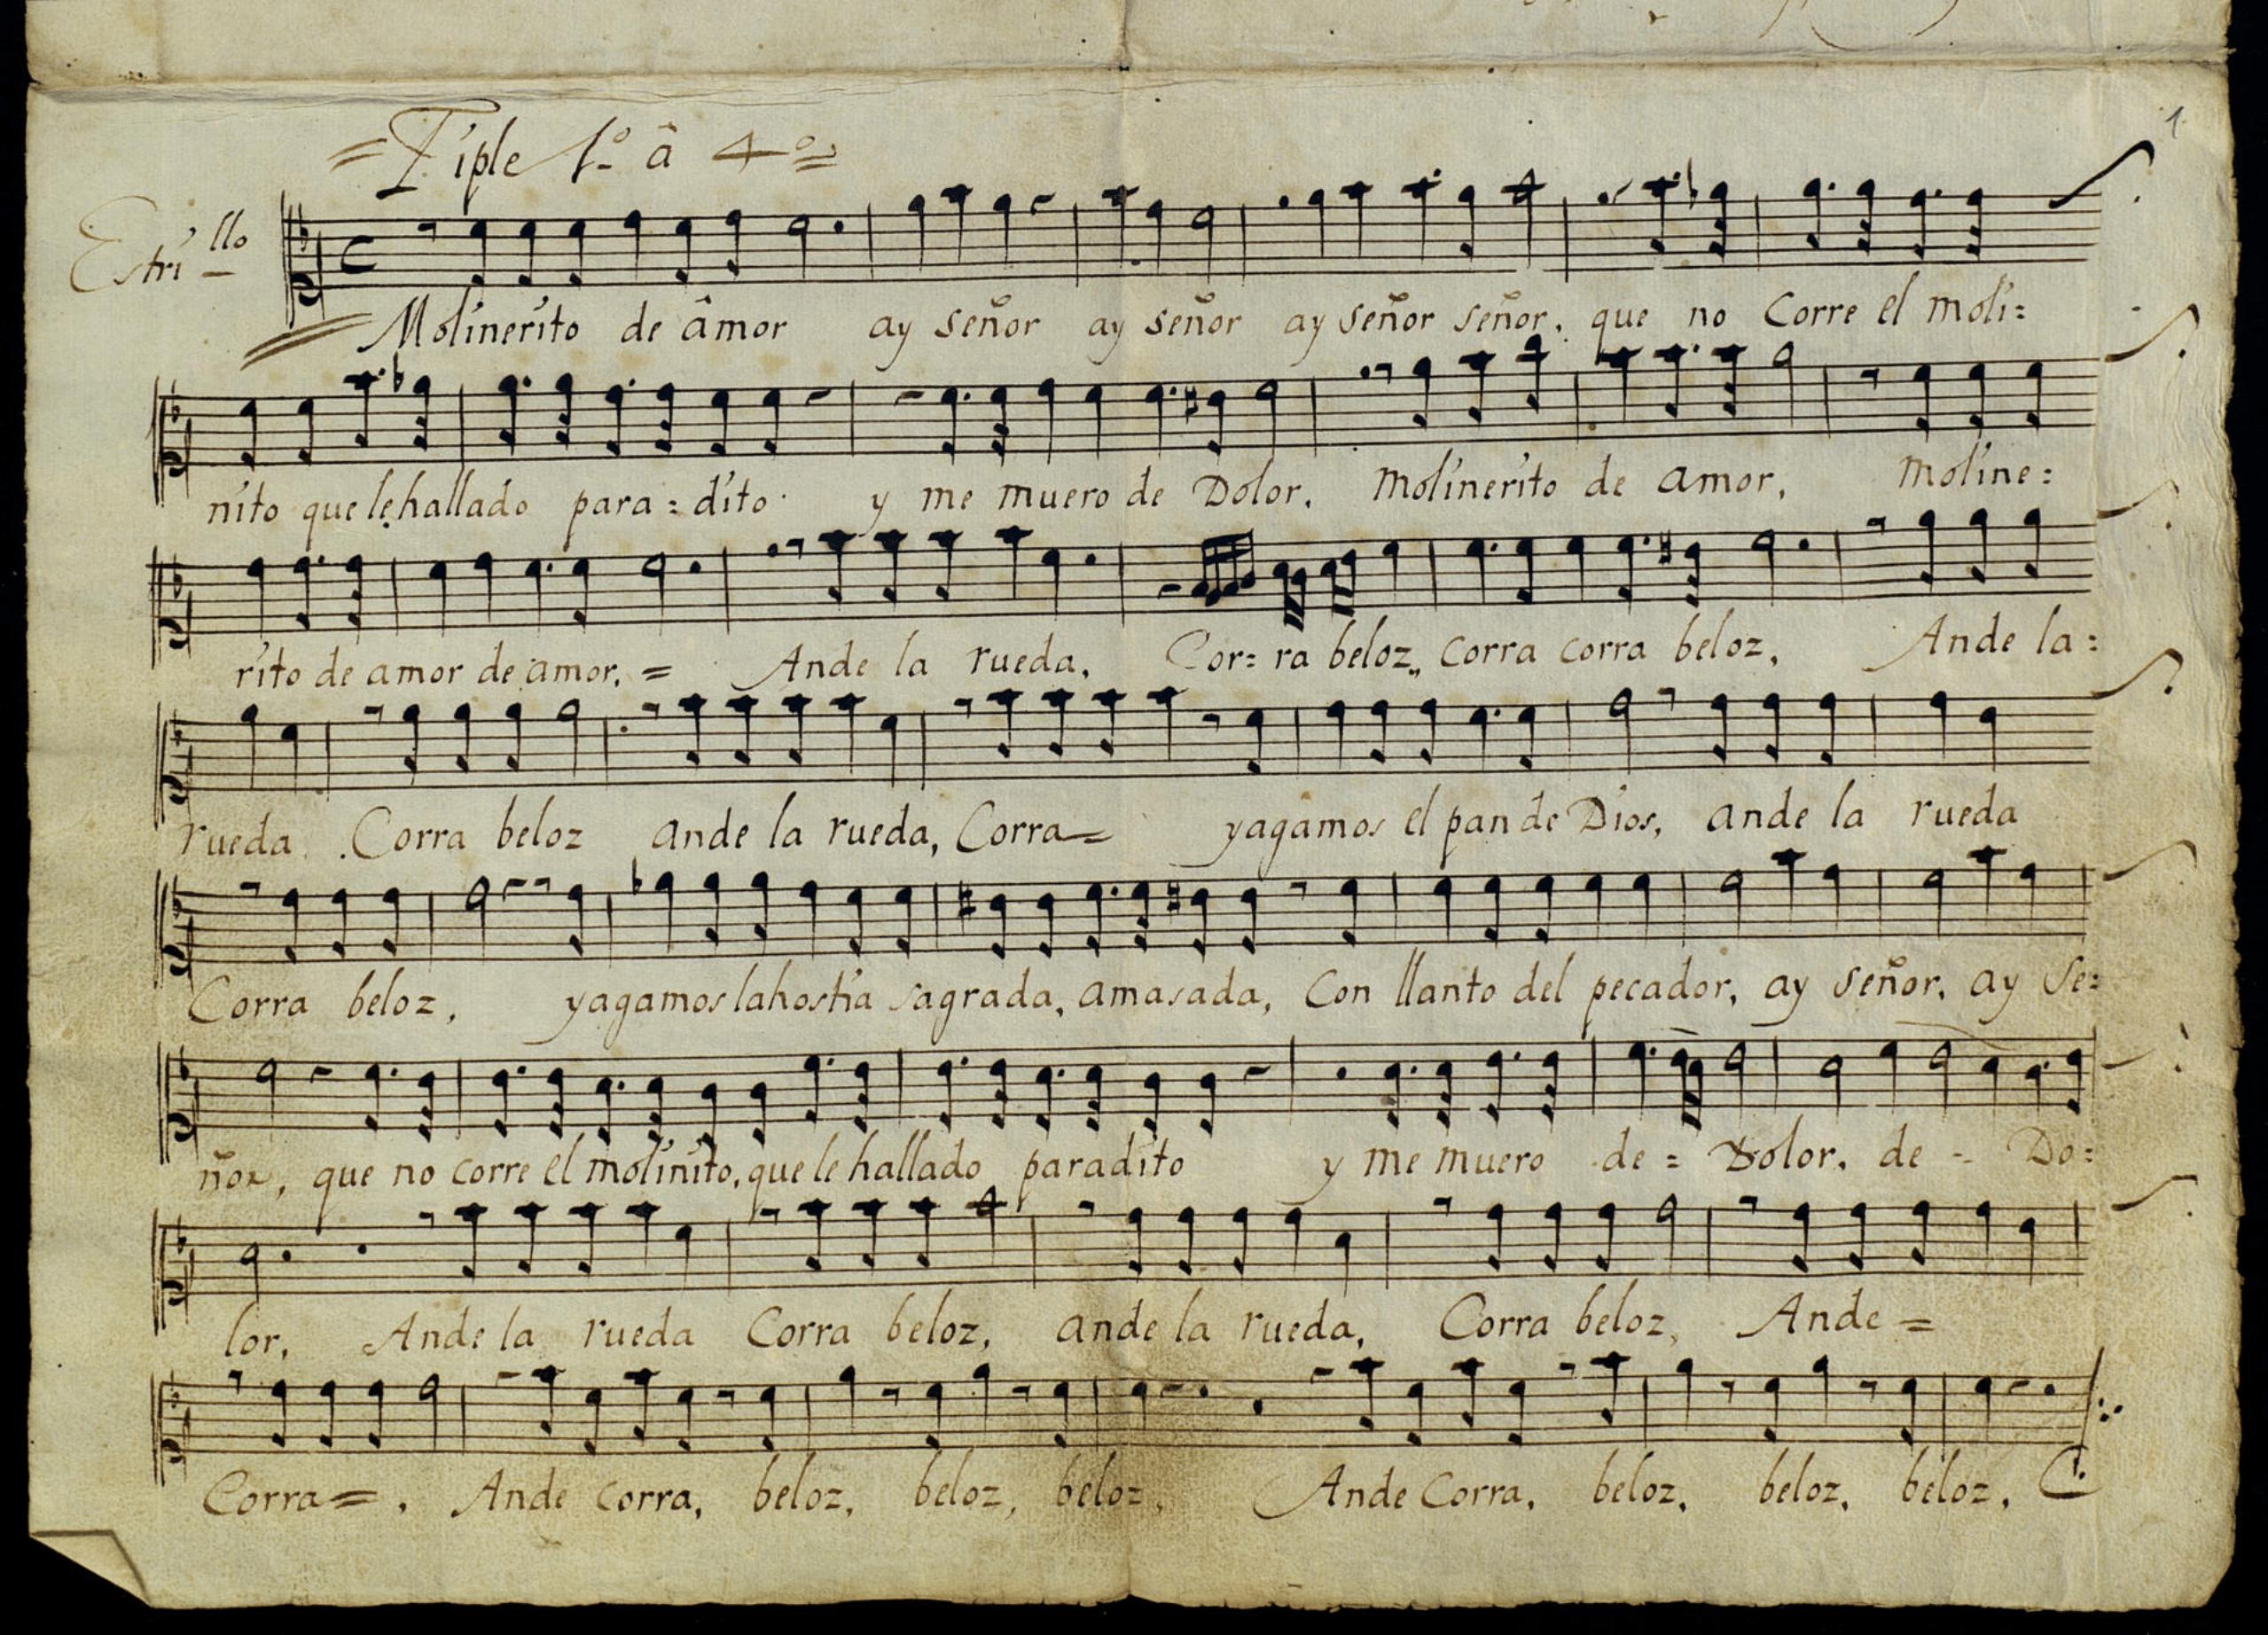 1
= Tiple 1º â 4º =
Estri-llo
Molinerito de âmor ay señor ay señor ay señor señor. que no Corre el moli=
nito que le hallado para=dito y me muero de Dolor. Molinerito de amor, Moline:
rito de amor de amor. = Ande la rueda, Cor=ra beloz, corra corra beloz, Ande la=
rueda. Corra beloz ande la rueda, Corra= yagamos el pan de Dios, ande la rueda
Corra beloz, yagamos la hostia sagrada, amasada, Con llanto del pecador, ay señor, ay se=
ñor, que no corre el molinito, que le hallado paradito y me muero de = Dolor. de - Do=
lor, Ande la rueda Corra beloz, ande la rueda, Corra beloz, Ande =
Corra =, Ande corra, beloz, beloz, beloz, Ande Corra, beloz, beloz, beloz,